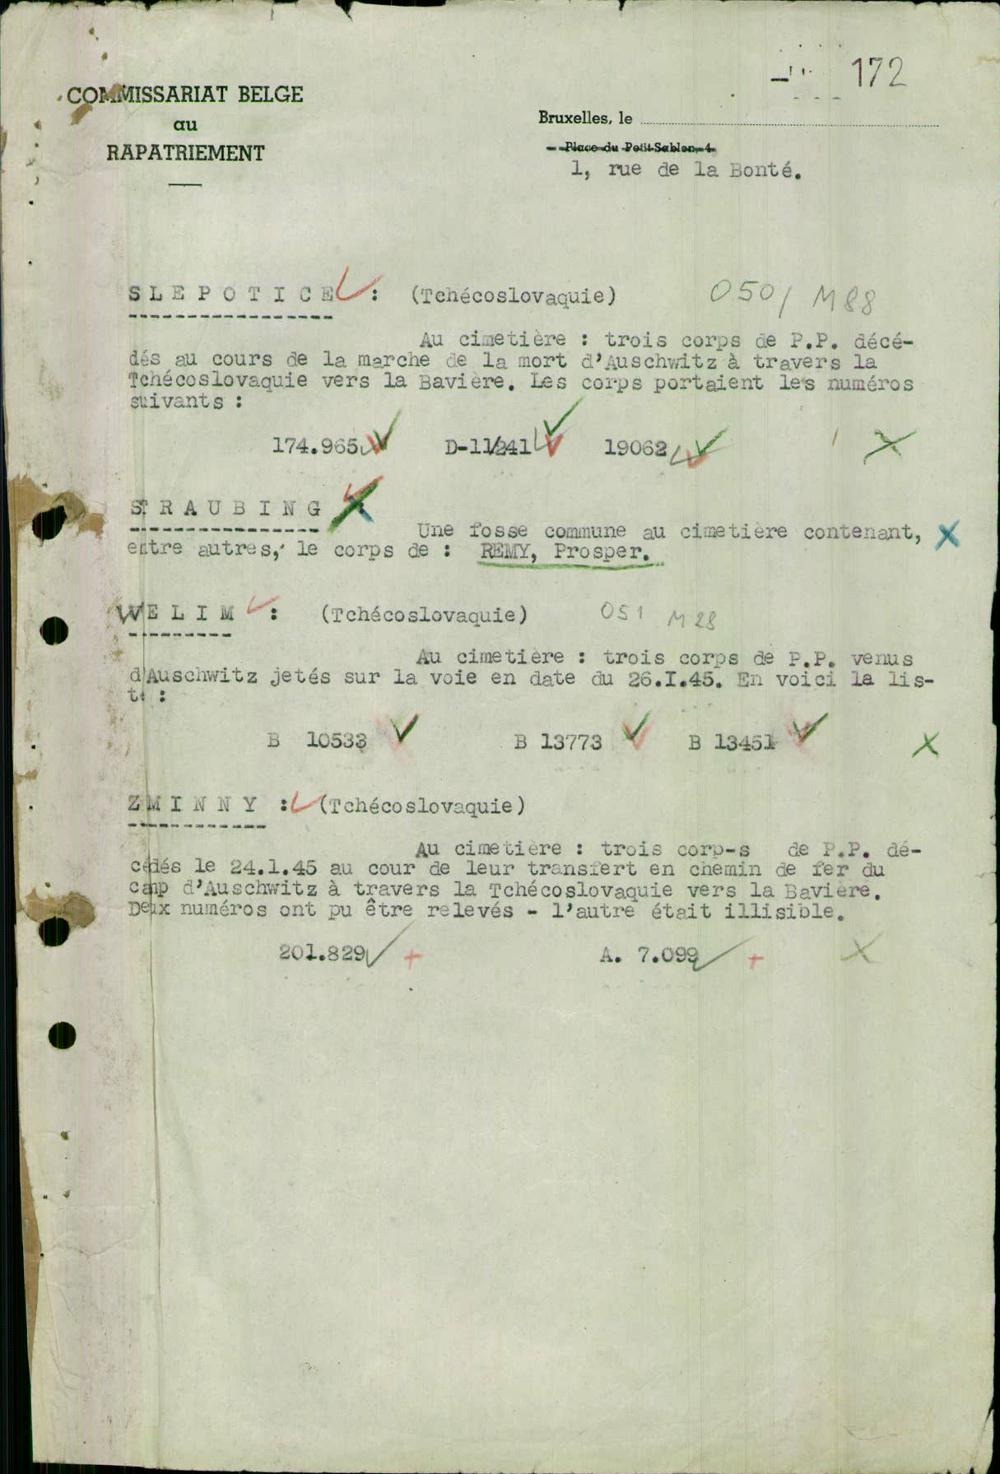 172
COMMISSARIAT BELGE
au
RAPATRIEMENT
Bruxelles, le
Place du Petit Sablon, 4
1, rue de la Bonté.
SLEPOTICE : (Tchécoslovaquie) 050/ M88
Au cimetière : trois corps de P.P. décé-
dés au cours de la marche de la mort d'Auschwitz à travers la
Tchécoslovaquie vers la Bavière. Les corps portaient les numéros
suivants :
174.965 D-11/241 19062
STRAUBING
Une fosse commune au cimetière contenant,
entre autres, le corps de : REMY, Prosper.
WELIM : (Tchécoslovaquie) 051 M28
Au cimetière : trois corps de P.P. venus
d'Auschwitz jetés sur la voie en date du 26.I.45. En voici la lis-
te :
B 10533 B 13773 B 13451
ZMINNY : (Tchécoslovaquie)
Au cimetière : trois corp-s de P.P. dé-
cédés le 24.1.45 au cour de leur transfert en chemin de fer du
camp d'Auschwitz à travers la Tchécoslovaquie vers la Bavière.
Deux numéros ont pu être relevés - l'autre était illisible.
201.829 A. 7.099